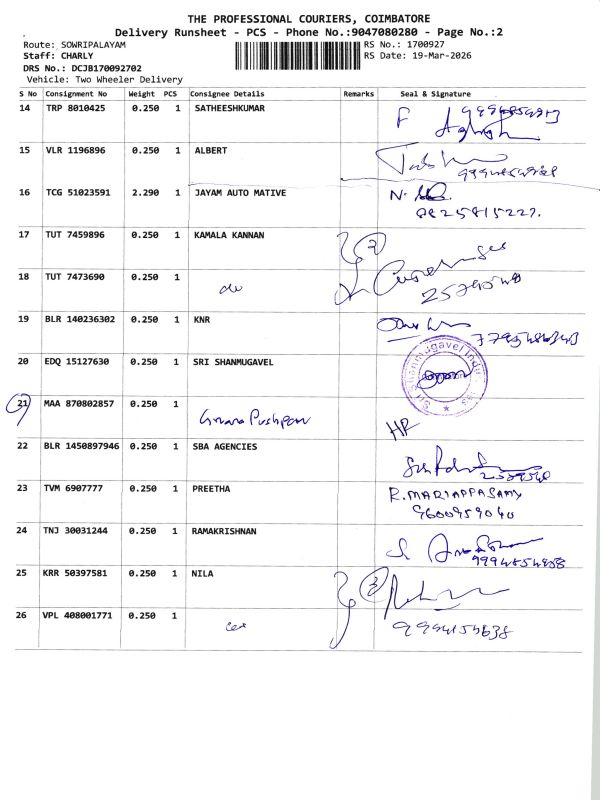 THE PROFESSIONAL COURIERS, COIMBATORE
Delivery Runsheet - PCS - Phone No.:9047080280 - Page No.:2
Route: SOWRIPALAYAM RS No.: 1700927
Staff: CHARLY RS Date: 19-Mar-2026
DRS No.: DCJB170092702
Vehicle: Two Wheeler Delivery
S No Consignment No Weight PCS Consignee Details Remarks Seal & Signature
14 TRP 8010425 0.250 1 SATHEESHKUMAR F
15 VLR 1196896 0.250 1 ALBERT
16 TCG 51023591 2.290 1 JAYAM AUTO MATIVE N.
9825815227.
17 TUT 7459896 0.250 1 KAMALA KANNAN 2
18 TUT 7473690 0.250 1 do
19 BLR 140236302 0.250 1 KNR
20 EDQ 15127630 0.250 1 SRI SHANMUGAVEL Sri Shanmugavel Indu
21 MAA 870802857 0.250 1 HR
22 BLR 1450897946 0.250 1 SBA AGENCIES
23 TVM 6907777 0.250 1 PREETHA R.MARIAPPASAMY
9600959040
24 TNJ 30031244 0.250 1 RAMAKRISHNAN
25 KRR 50397581 0.250 1 NILA
26 VPL 408001771 0.250 1